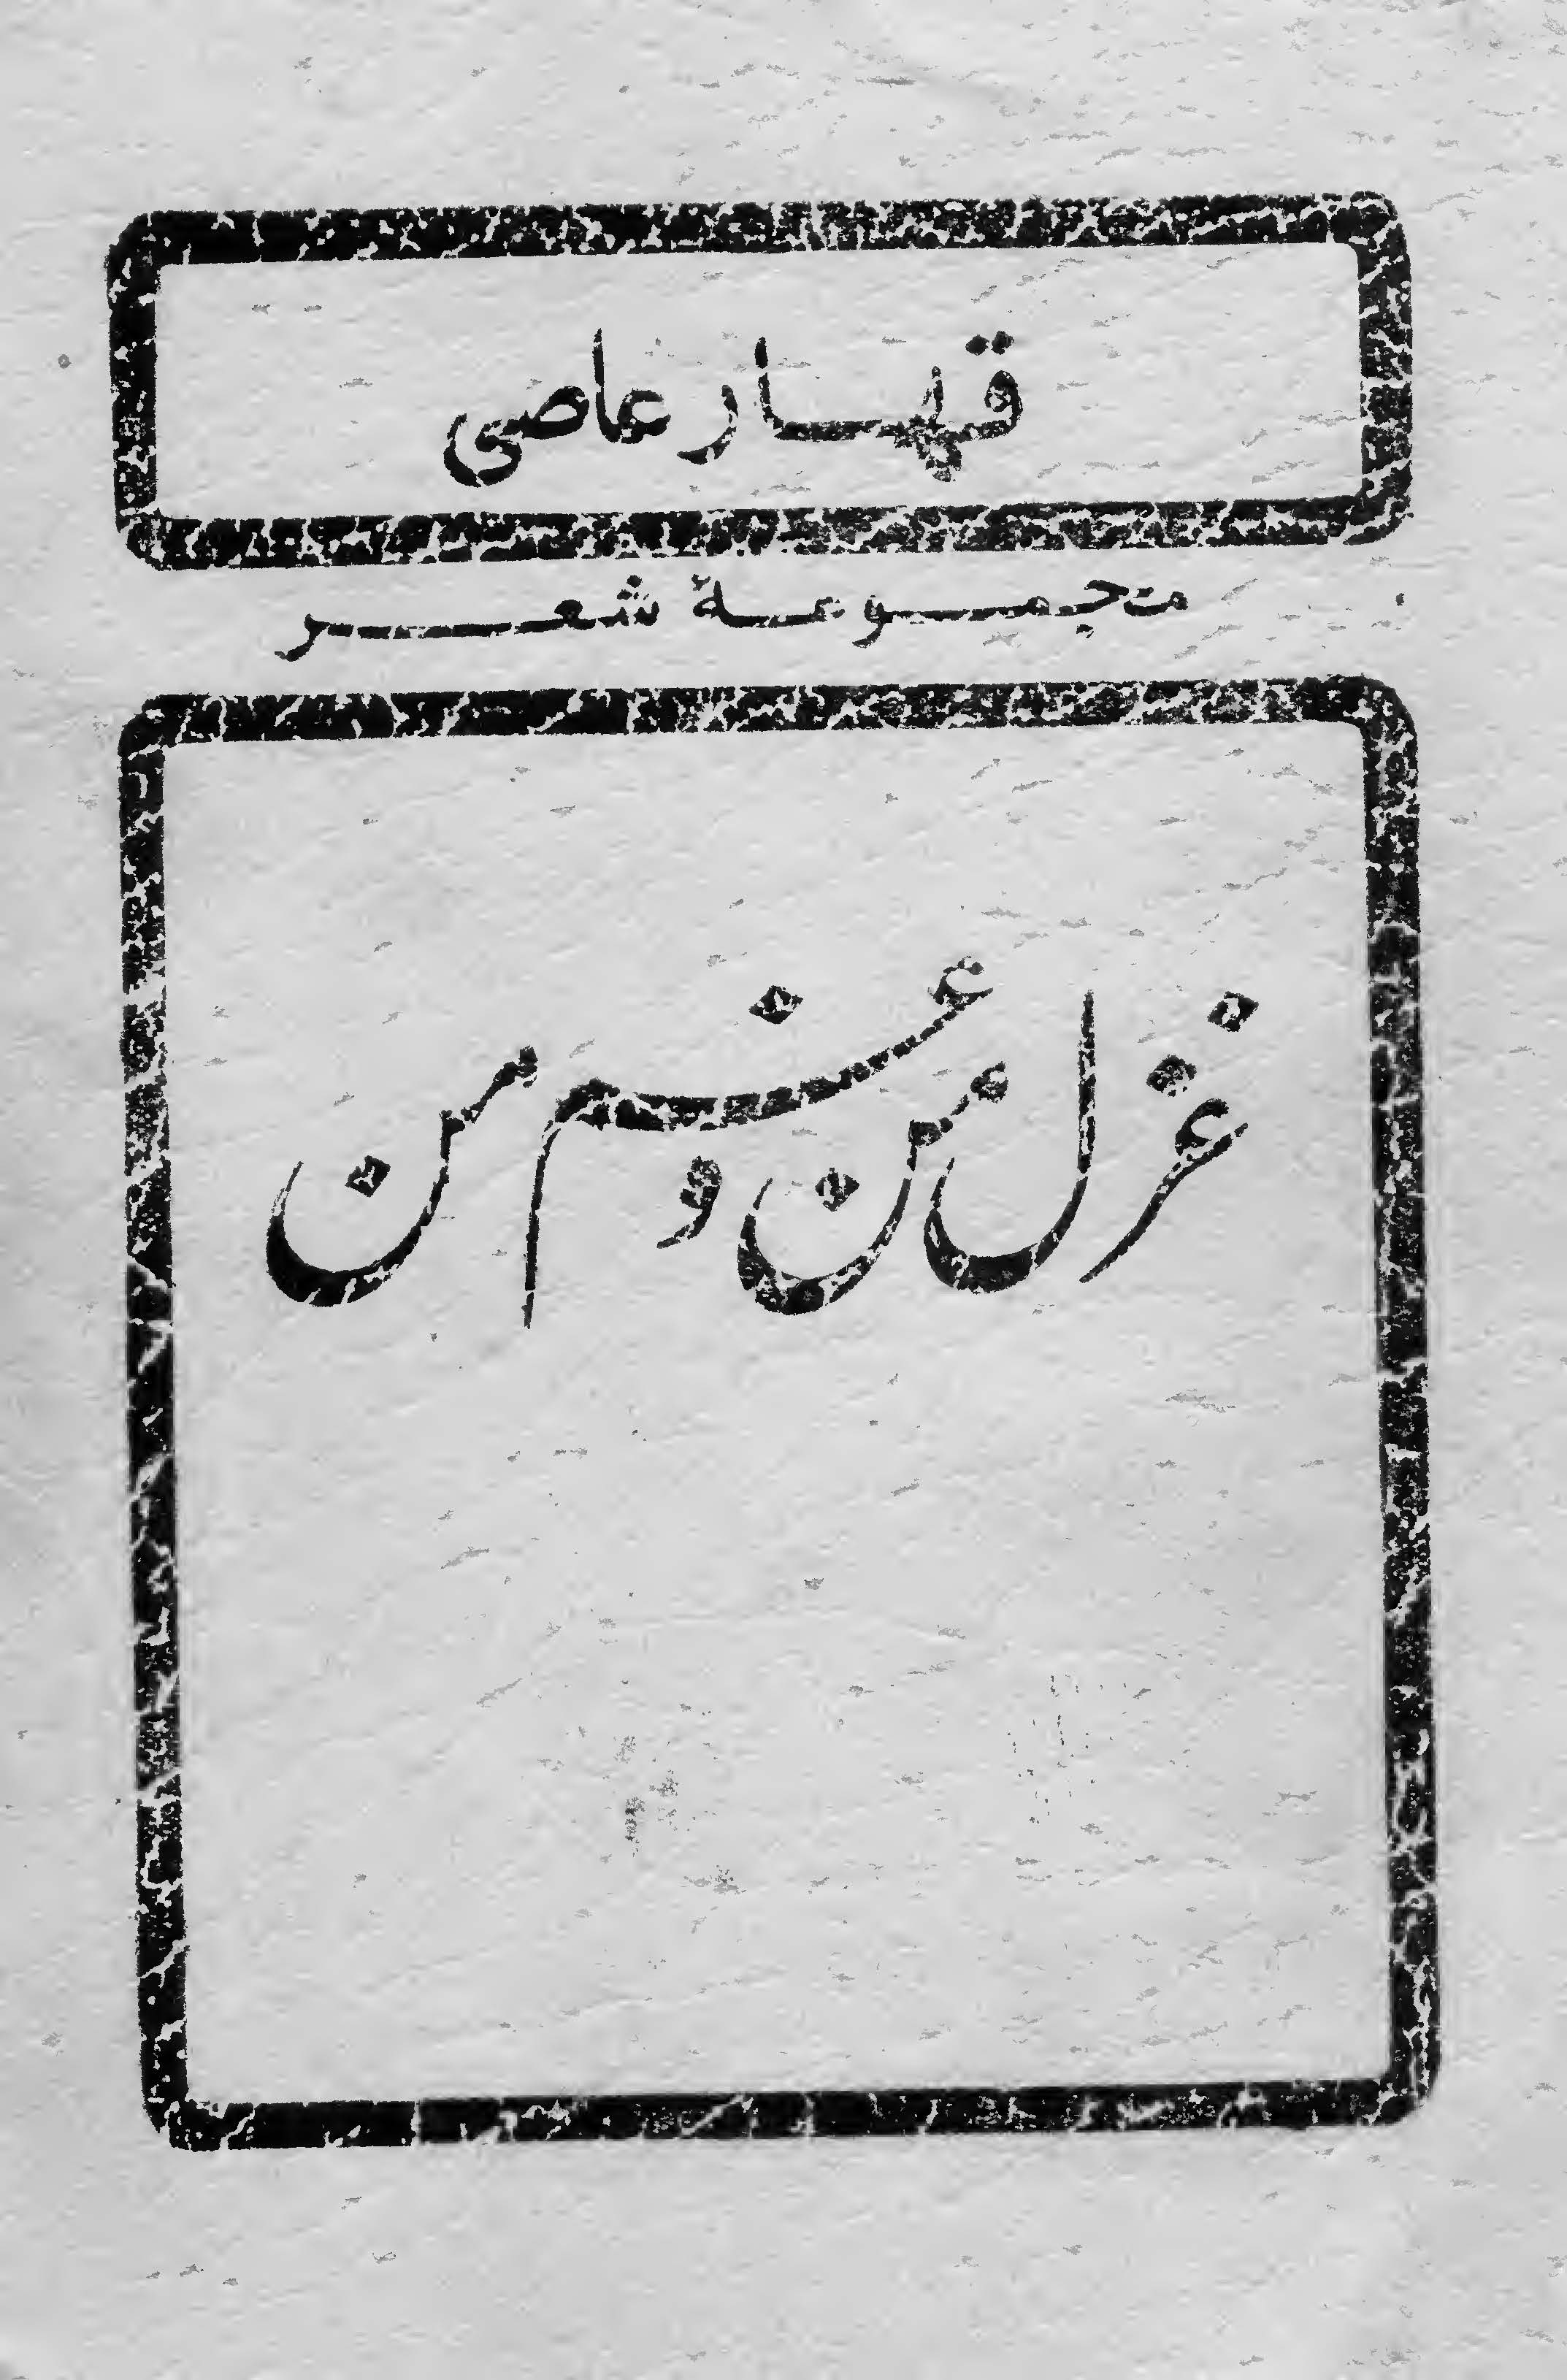 قهار عاصی
مجموعهٔ شعر
غزل من و غم من